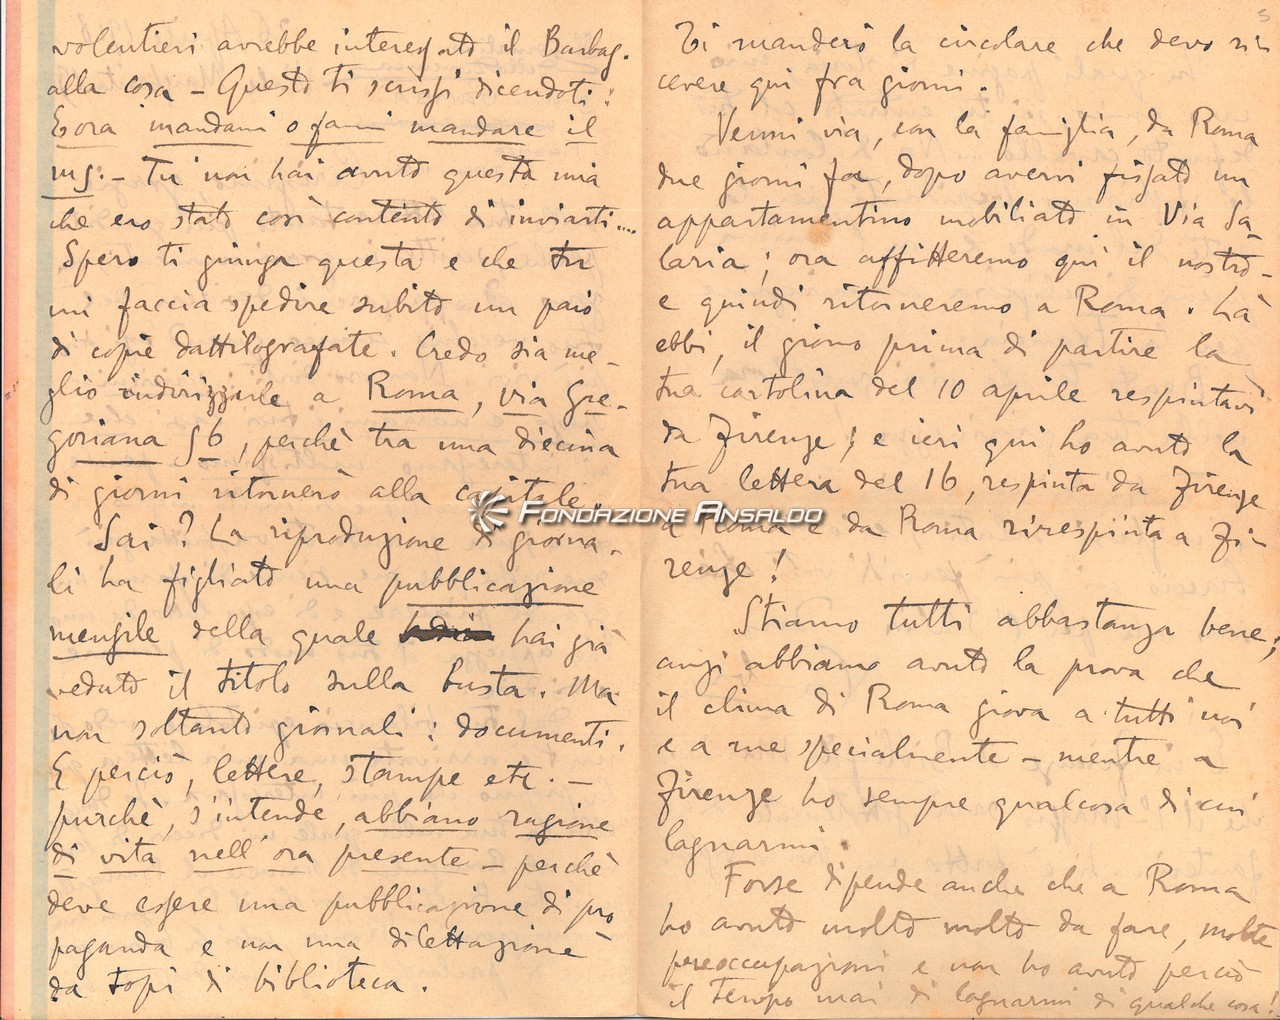 volentieri avrebbe interessato il Barbag.
alla cosa – Questo ti scrissi dicendoti:
E ora mandami o fammi mandare il
ms. – Tu non hai avuto questa mia
che ero stato così contento di inviarti....
Spero ti giunga questa e che tu
mi faccia spedire subito un paio
di copie dattilografate. Credo sia me-
glio indirizzarle a Roma, via Gre-
goriana 56, perchè tra una diecina
di giorni ritornerò alla capitale.
Sai? La riproduzione di giorna-
li ha figliato una pubblicazione
mensile della quale hai già
veduto il titolo sulla busta. Ma
non soltanto giornali: documenti.
E perciò, lettere, stampe etc. –
purchè, s'intende, abbiano ragione
di vita nell'ora presente – perchè
deve essere una pubblicazione di pro
paganda e non una dilettazione
da topi di biblioteca.
5
Ti manderò la circolare che devo ri-
cevere qui fra giorni.
Venni via, con la famiglia, da Roma
due giorni fa, dopo avervi fissato un
appartamentino mobiliato in Via Sa-
laria; ora affitteremo qui il nostro –
e quindi ritorneremo a Roma. Là
ebbi, il giorno prima di partire la
tua cartolina del 10 aprile respintavi
da Firenze; e ieri qui ho avuto la
tua lettera del 16, respinta da Firenze
a Roma e da Roma rirespinta a Fi-
renze!
Stiamo tutti abbastanza bene;
anzi abbiamo avuto la prova che
il clima di Roma giova a tutti noi
e a me specialmente – mentre a
Firenze ho sempre qualcosa di cui
lagnarmi.
Forse dipende anche che a Roma
ho avuto molto molto da fare, molte
preoccupazioni e non ho avuto perciò
il tempo mai di lagnarmi di qualche cosa!
Fondazione Ansaldo